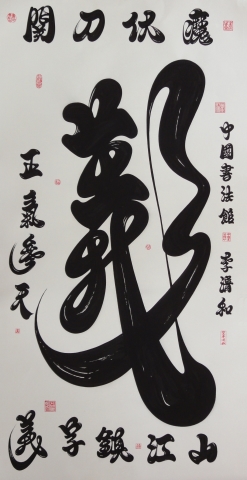 關刀伏魔
義
正氣參天
中國書法
李濟和
義字鎮江山